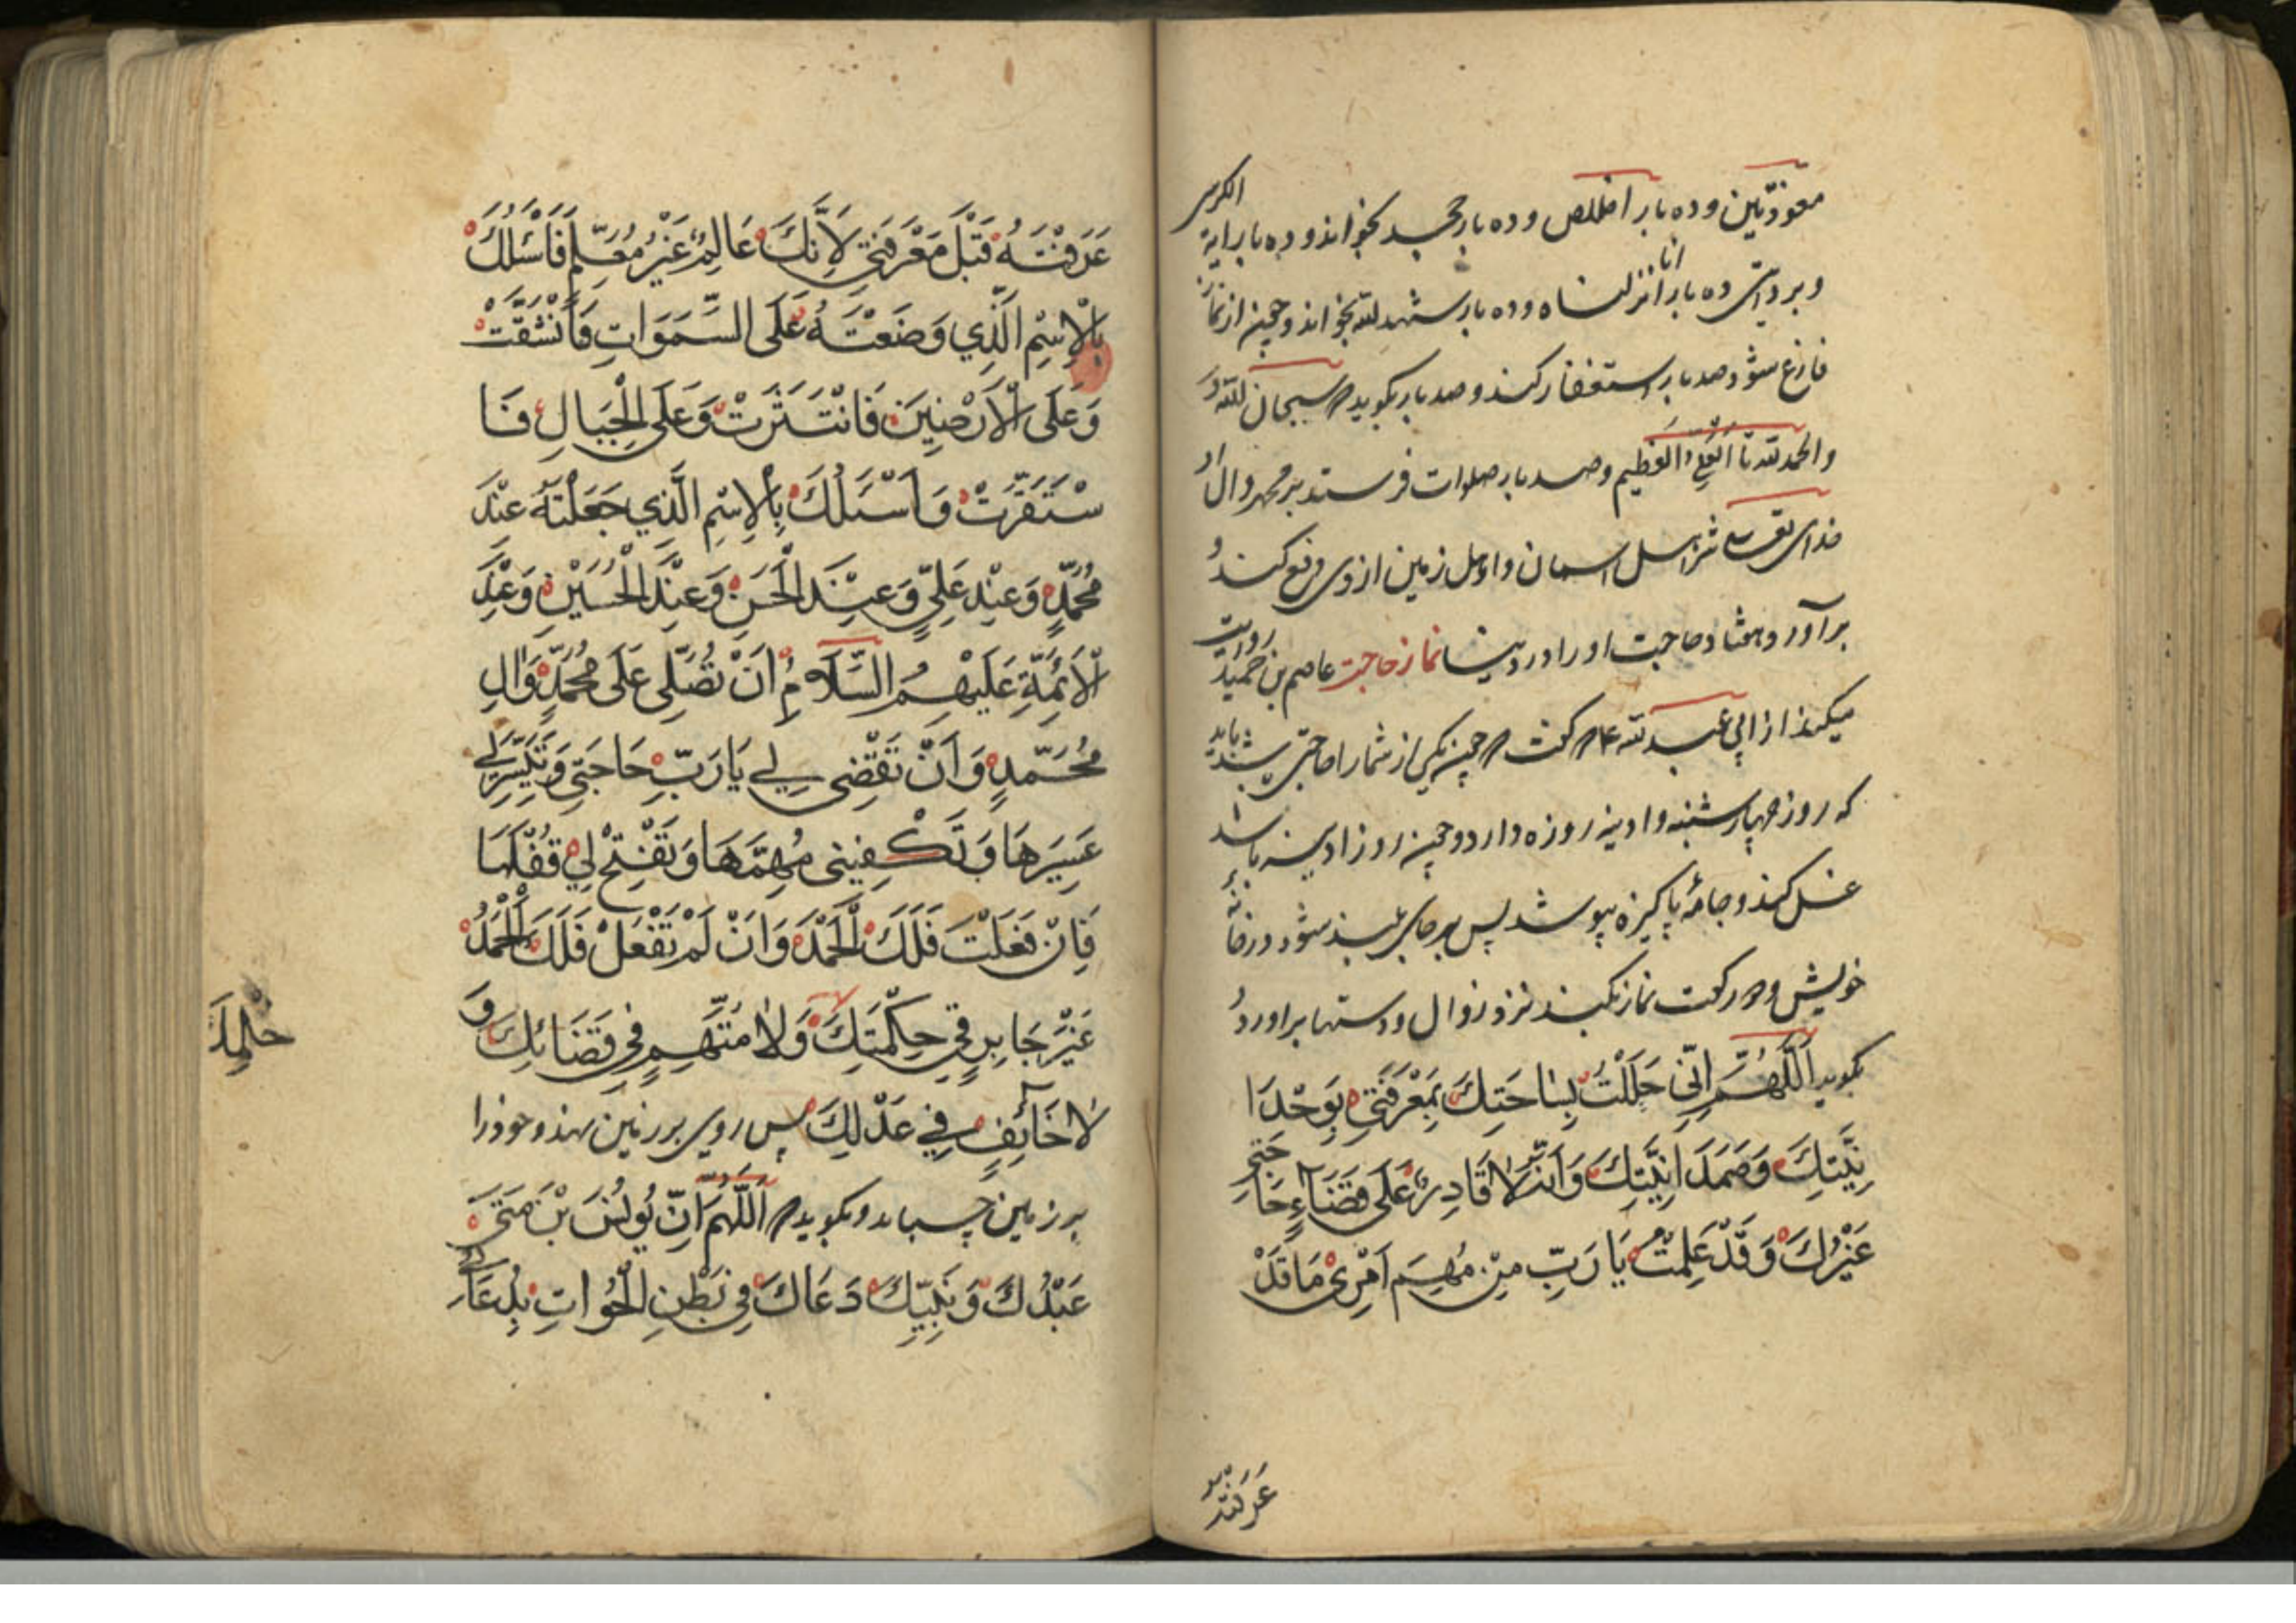 معوذتین وده بار اخلاص وده بار جحد بخواند وده بار آیة الکرسی
وبروایتی ده بار انا انزلناه وده بار شهد الله بخواند وچون از نماز
فارغ شود صد بار استغفار کند وصد بار بکوید سبحان الله و
والحمد لله تا العلی العظیم وصد بار صلوات فرستد بر محمد وال او
خدای تعالی شر اهل اسمان واهل زمین از وی دفع کند و
برآورد وهفتاد حاجت او را در دنیا نماز حاجت عاصم بن حمید روایت
میکند از ابی عبد الله ع م کفت چون یکی از شما را حاجتی باشد باید
که روز چهارشنبه وادینه روزه دارد وچون روز ادینه باشد
غسل کند وجامهٔ پاکیزه بپوشد پس بر جای بلند شود در خانهٔ
خویش ودو رکعت نماز بکند نزد زوال ودستها براورد و
بکوید اَللّٰهُمَّ اِنّی حَلَلْتُ بِسٰاحَتِكَ بِمَعْرِفَتی بِوَحْدَا
نِیَّتِكَ وَصَمَدَانِیَّتِكَ وَاَنَّهُ لٰا قَادِرَ عَلَی قَضَآءِ حَاجَتِی
غَیْرُكَ وَقَدْ عَلِمْتَ یَا رَبِّ مِنْ مُهِمِّ اَمْرِی مَا قَدْ
عَرَفْتَهُ
عَرَفْتَهُ قَبْلَ مَعْرِفَتِی لِاَنَّكَ عَالِمٌ غَیْرُ مُعَلَّمٍ فَاَسْئَلُكَ
بِالْاِسْمِ الَّذِي وَضَعْتَهُ عَلَی السَّمَوَاتِ فَانْشَقَّتْ
وَعَلَی الْاَرَضِینَ فَانْتَثَرَتْ وَعَلَی الْجِبَالِ فَا
سْتَقَرَّتْ وَاَسْئَلُكَ بِالْاِسْمِ الَّذِي جَعَلْتَهُ عِنْدَ
مُحَمَّدٍ وَعِنْدِ عَلِيٍّ وَعِنْدَ الْحَسَنِ وَعِنْدَ الْحُسَیْنِ وَعِنْدَ
الْاَئِمَّةِ عَلَیْهِمُ السَّلَامُ اَنْ تُصَلِّی عَلَی مُحَمَّدٍ وَالِ
مُحَمَّدٍ وَاَنْ تَقْضِی لِي یَا رَبِّ حَاجَتِي وَتُیَسِّرَ لِي
عَسِیرَهَا وَتَكْفِینِی مُهِمَّهَا وَتَفْتَحَ لِي قُفْلَهَا
فَاِنْ فَعَلْتَ فَلَكَ الْحَمْدُ وَاِنْ لَمْ تَفْعَلْ فَلَكَ الْحَمْدُ
غَیْرَ جَابِرٍ فِي حِكْمَتِكَ وَلٰا مُتَّهَمٍ فِي قَضَائِكَ وَ
لٰا خَآئِفٍ فِي عَدْلِكَ پس روی بر زمین نهد وخود را
بر زمین چسباند وبکوید اَللّٰهُمَّ اِنَّ یُونُسَ بْنَ مَتَّی
عَبْدُكَ وَنَبِیُّكَ دَعَاكَ فِي بَطْنِ الْحُوتِ بِدُعَائِي